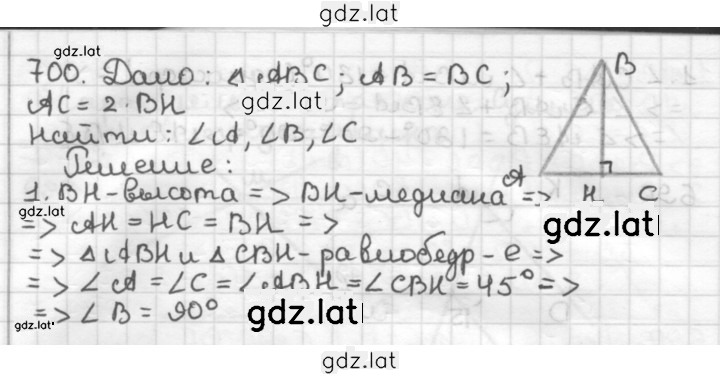 gdz.lat
gdz.lat
700. Дано: △ ABC; AB = BC;
AC = 2·BH
gdz.lat
найти: ∠A, ∠B, ∠C
Решение:
B
A H C
1. BH - высота => BH - медиана =>
gdz.lat
=> AH = HC = BH =>
gdz.lat
=> △ ABH и △ CBH - равнобедр - е =>
=> ∠A = ∠C = ∠ABH = ∠CBH = 45° =>
=> ∠B = 90°
gdz.lat
gdz.lat
gdz.lat